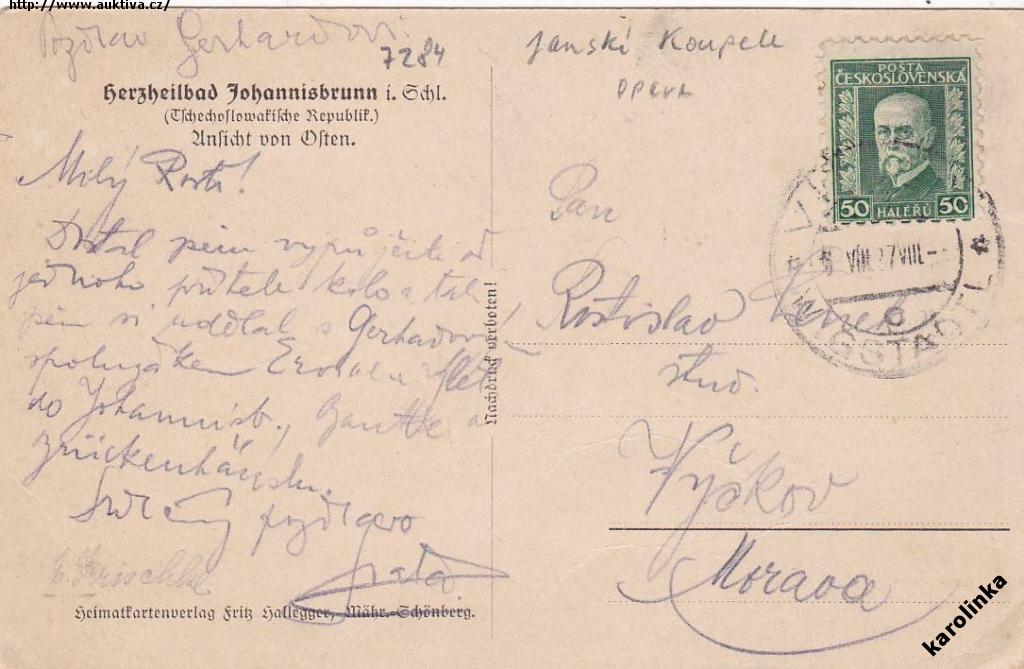 http://www.auktiva.cz/
Pozdrav Gerhardovi
7284
Janské Koupele
opava
Herzheilbad Johannisbrunn i. Schl.
(Tschechoslowakische Republik.)
Ansicht von Osten.
Milý Rosti!
jsem vypůjčit od
jednoho přítele kolo a tak
jsem si udělal s Gerhardovi
spolužákem
do Johannisb., a
Srdečný pozdrav
E. Krischke
Heimatkartenverlag Fritz Hallegger, Mähr.-Schönberg.
Nachdruck verboten!
POŠTA
ČESKOSLOVENSKÁ
50 HALÉŘŮ 50
VIII 27 VIII
WIGSTADTL
Pan
Rostislav
stud.
Vyškov
Morava
karolinka